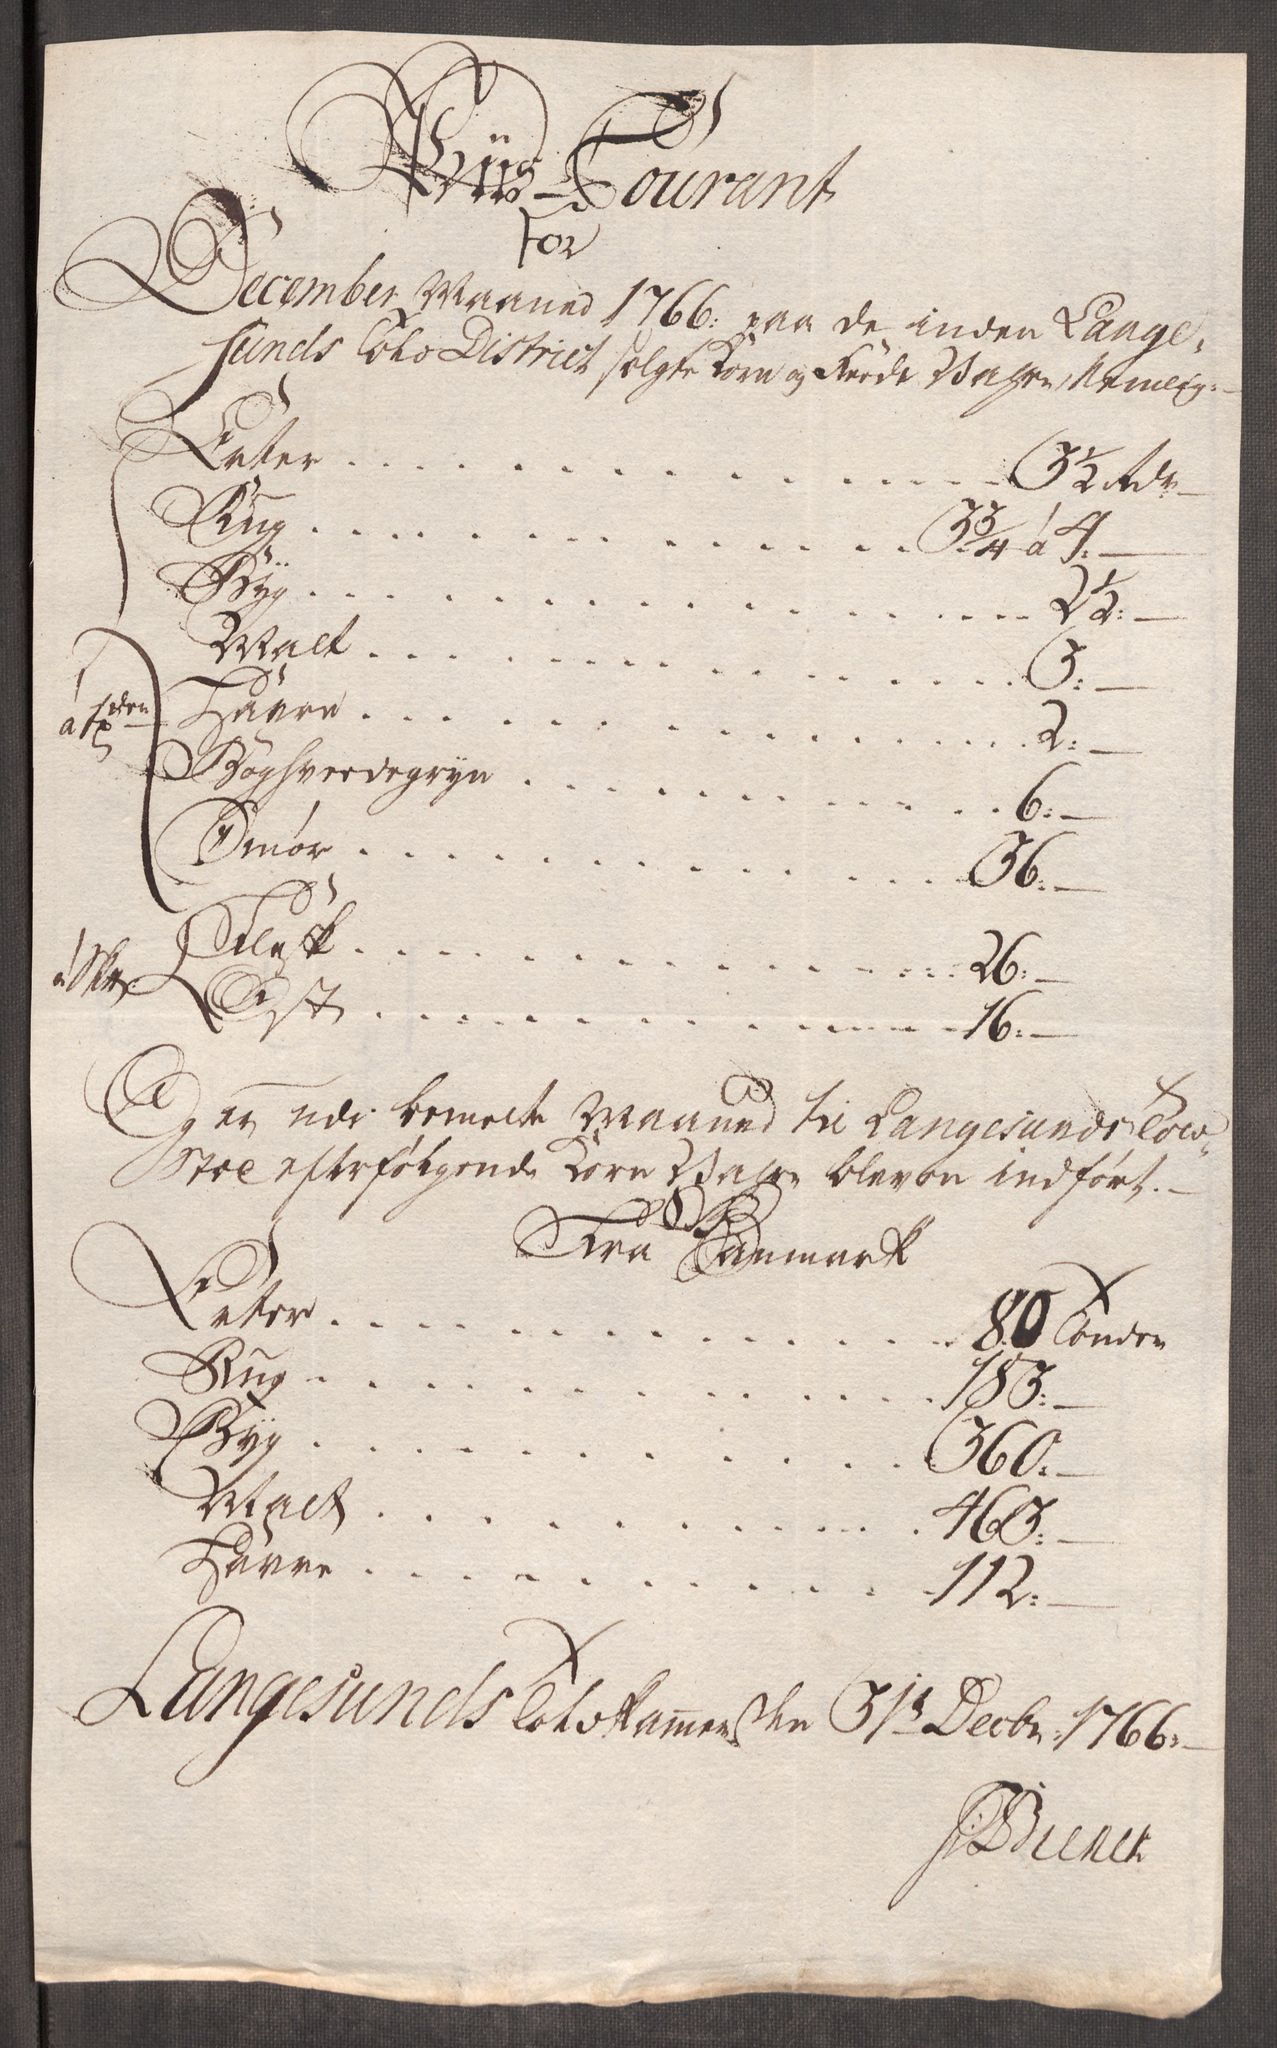 Priis-Courant
for
December Maaned 1766: paa de inden Lange-
sunds Told District solgte Korn og Feede Vahre, Nemlig:
Erter . . . 3 1/2 Rdr
Rug . . . 3 3/4 á 4:
Byg . . . 2 1/2:
Malt . . . 3:
á Tønden
Havre . . . 2:
Boghveedegryn . . . 6:
Smør . . . 36:
Flesk . . . 26:
Ost . . . 16:
Og er udi bemelte Maaned til Langesunds Told-
Sted efterfølgende Korn Vahre bleven indført.
Fra Danmark
Erter . . . 80 Tønder
Rug . . . 183:
Byg . . . 360:
Malt . . . 463:
Havre . . . 112:
Langesunds Told Kammer den 31te Decbr: 1766: